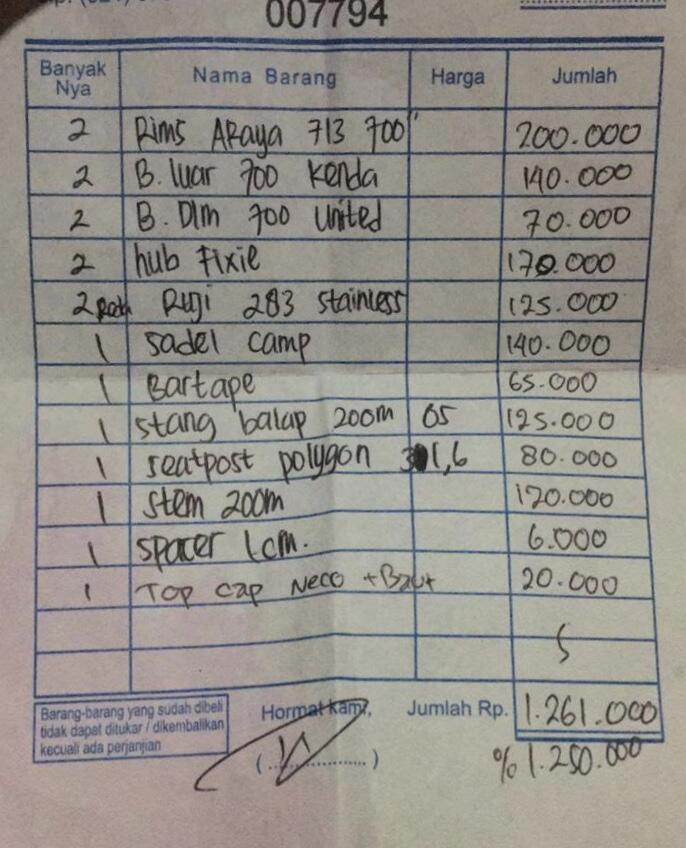 007794
Banyak Nya Nama Barang Harga Jumlah
2 Rims Araya 713 700" 200.000
2 B. luar 700 Kenda 140.000
2 B. Dlm 700 United 70.000
2 hub Fixie 170.000
2 Ruji 283 stainless 125.000
1 sadel camp 140.000
1 Bartape 65.000
1 stang balap 200m 05 125.000
1 seatpost polygon 31,6 80.000
1 stem 200m 120.000
1 spacer 1cm. 6.000
1 Top cap Neco + Baut 20.000
Barang-barang yang sudah dibeli
tidak dapat ditukar / dikembalikan
kecuali ada perjanjian
Hormat kami,
Jumlah Rp. 1.261.000
% 1.250.000